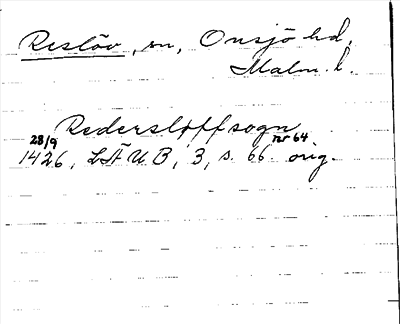 Reslöv, sn, Onsjö hd,
Malm. l.
Rederslöffsogn
28/9 nr 64
1426, LÄUB, 3, s. 66. orig.